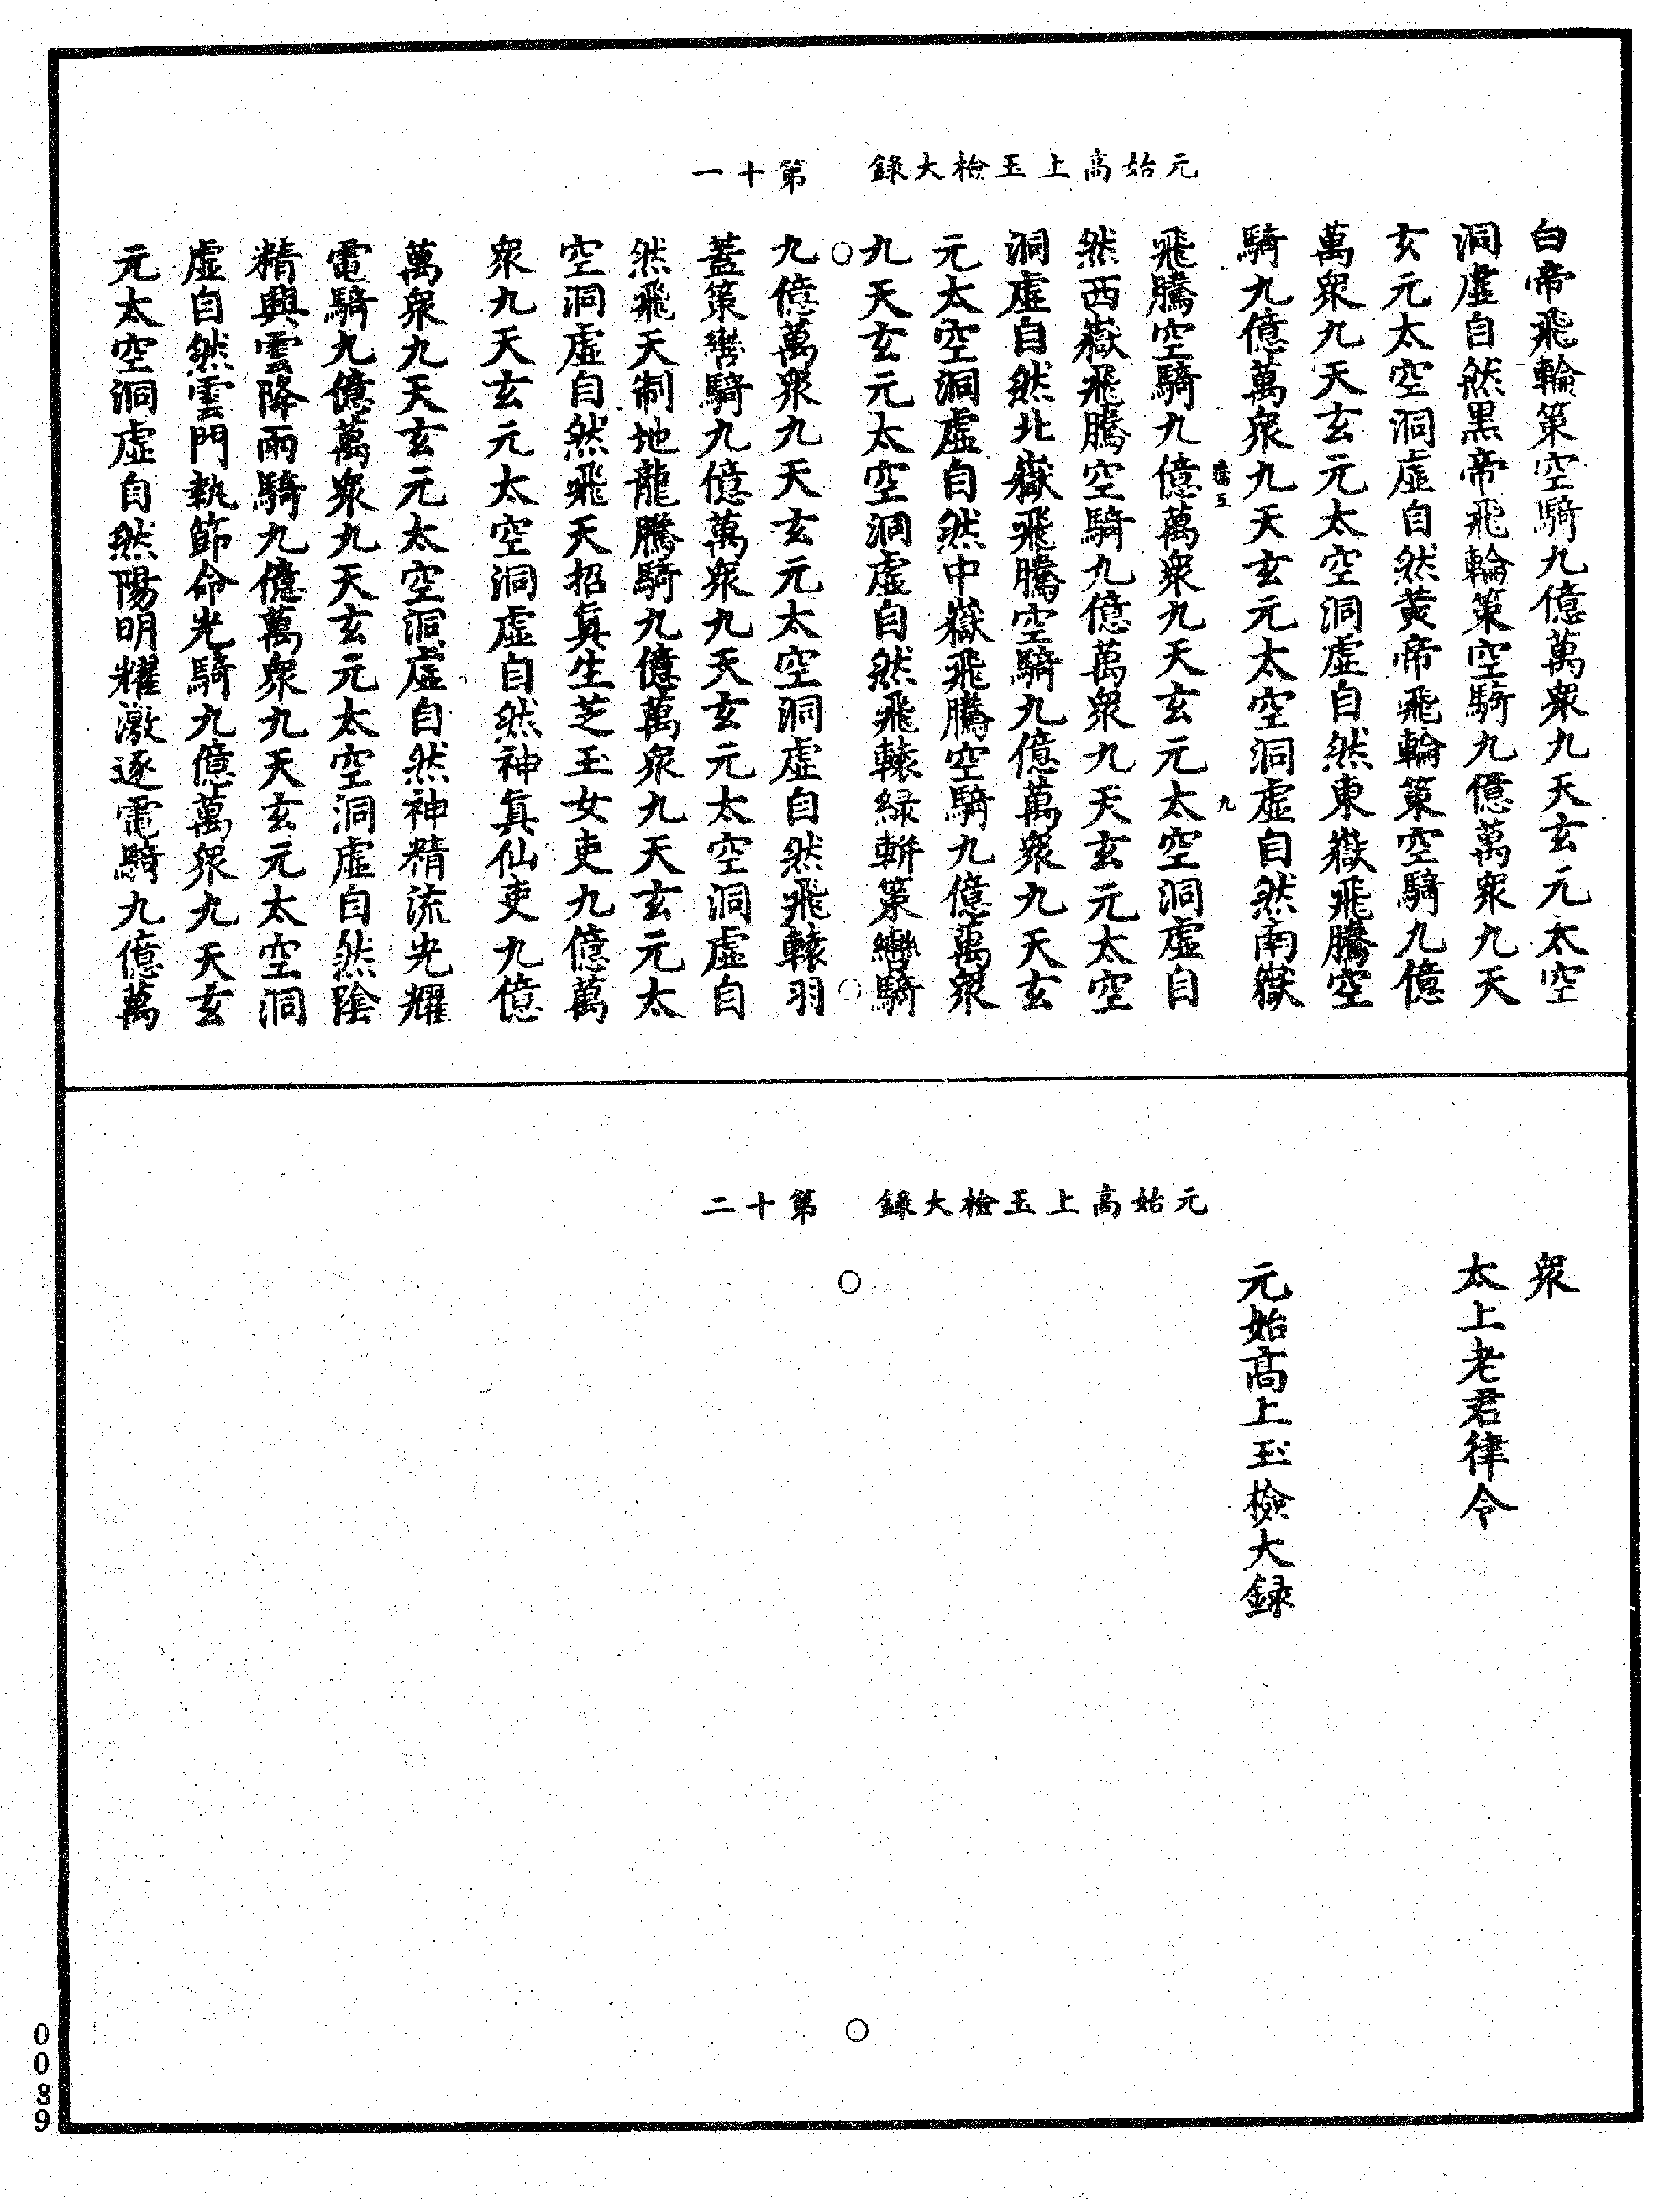 元始高上玉檢大錄　第十一
白帝飛輪策空騎九億萬衆九天玄元太空
洞虛自然黑帝飛輪策空騎九億萬衆九天
玄元太空洞虛自然黃帝飛輪策空騎九億
萬衆九天玄元太空洞虛自然東嶽飛騰空
騎九億萬衆九天玄元太空洞虛自然南嶽
九
飛騰空騎九億萬衆九天玄元太空洞虛自
然西嶽飛騰空騎九億萬衆九天玄元太空
洞虛自然北嶽飛騰空騎九億萬衆九天玄
元太空洞虛自然中嶽飛騰空騎九億萬衆
九天玄元太空洞虛自然飛轅綠軿策轡騎
九億萬衆九天玄元太空洞虛自然飛轅羽
蓋策轡騎九億萬衆九天玄元太空洞虛自
然飛天制地龍騰騎九億萬衆九天玄元太
空洞虛自然飛天招眞生芝玉女吏九億萬
衆九天玄元太空洞虛自然神眞仙吏九億
萬衆九天玄元太空洞虛自然神精流光耀
電騎九億萬衆九天玄元太空洞虛自然陰
精興雲降雨騎九億萬衆九天玄元太空洞
虛自然雲門執節命光騎九億萬衆九天玄
元太空洞虛自然陽明耀激逐電騎九億萬
元始高上玉檢大錄　第十二
衆
太上老君律令
元始高上玉檢大録
0039